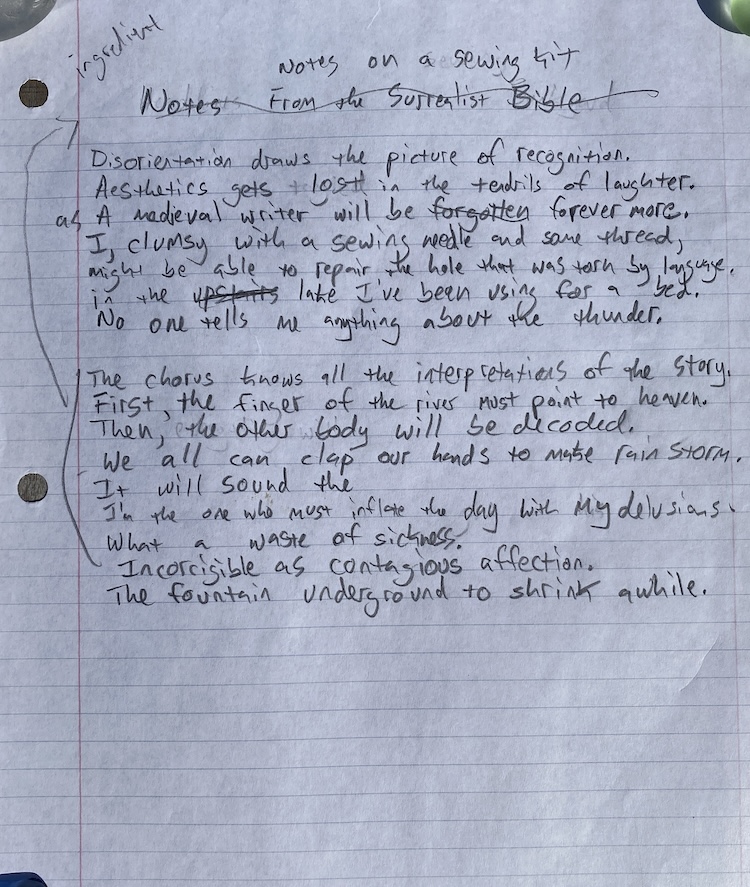 ingredient
Notes on a sewing kit
Notes From the Surrealist Bible
Disorientation draws the picture of recognition.
Aesthetics gets lost in the tendrils of laughter.
as A medieval writer will be forgotten forever more.
I, clumsy with a sewing needle and some thread,
might be able to repair the hole that was torn by language.
in the upstarts lake I've been using for a bed.
No one tells me anything about the thunder.
The chorus knows all the interpretations of the story.
First, the finger of the river must point to heaven.
Then, the other body will be decoded.
We all can clap our hands to make rain storm.
It will sound the
I'm the one who must inflate the day with my delusions.
What a waste of sickness.
Incorrigible as contagious affection.
The fountain underground to shrink awhile.